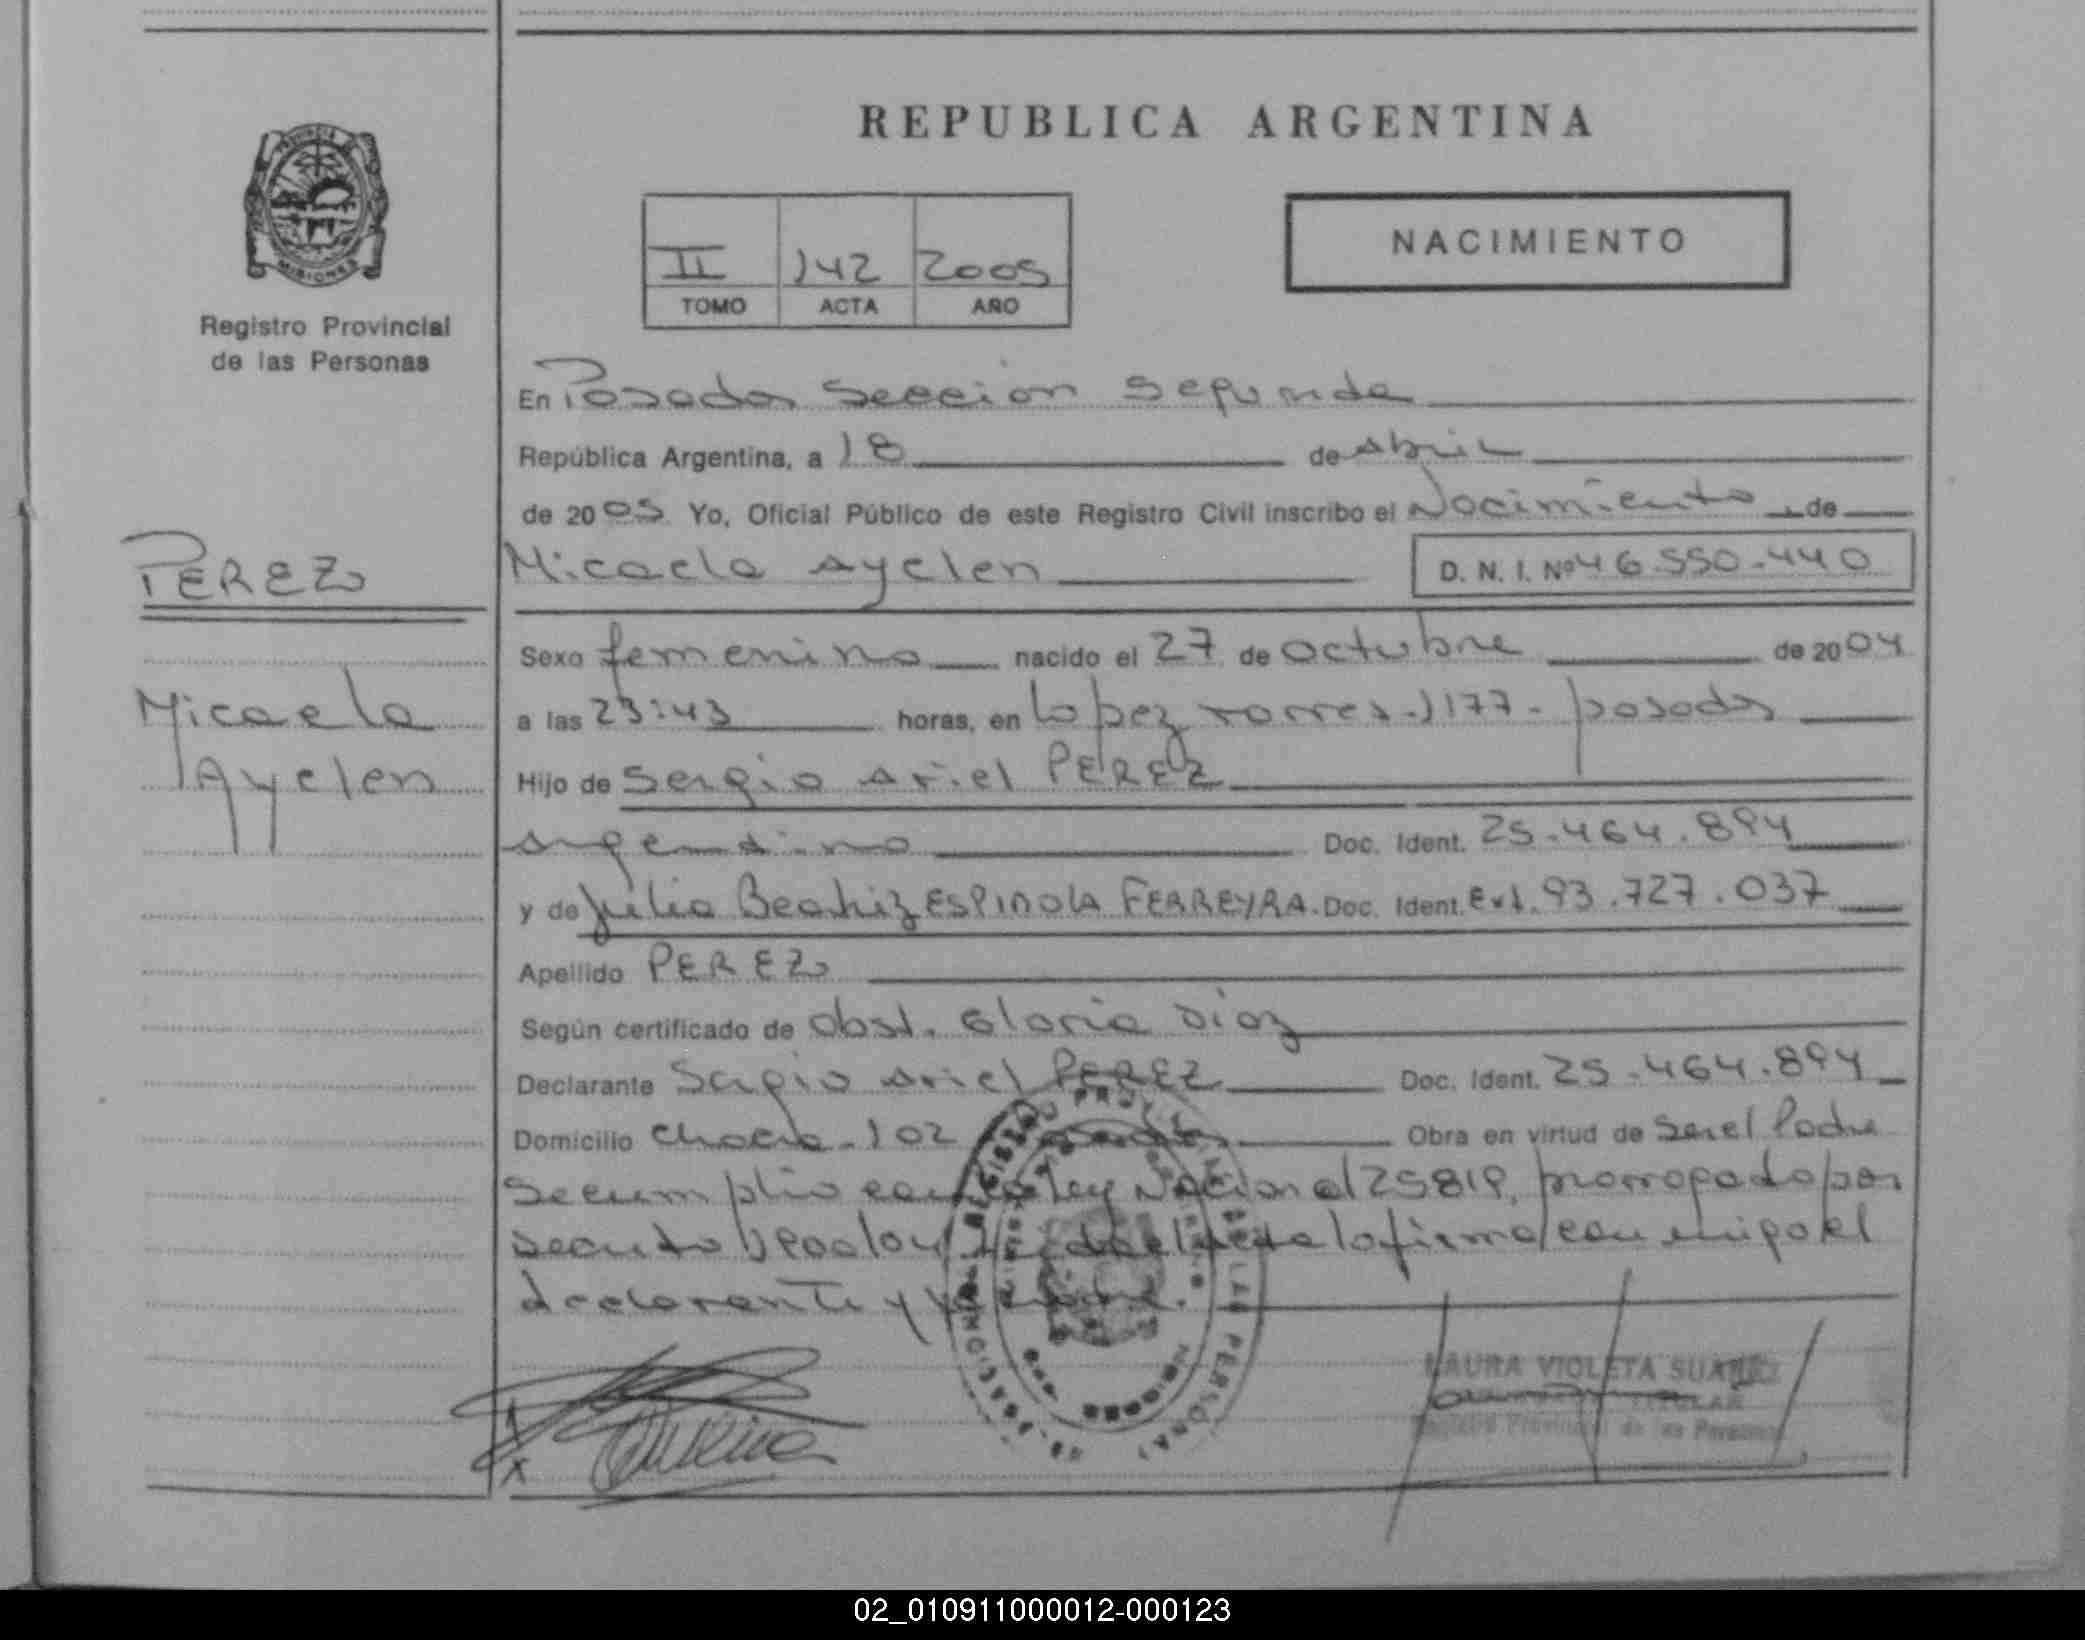 REPUBLICA ARGENTINA
PROVINCIA DE
MISIONES
Registro Provincial
de las Personas
II 142 2005
TOMO ACTA AÑO
NACIMIENTO
En Posadas Seccion Segunda
República Argentina, a 18 de Abril
de 2005 Yo, Oficial Público de este Registro Civil inscribo el Nacimiento de
PEREZ
Micaela Ayelen D. N. I. Nº 46.550.440
Sexo femenino nacido el 27 de octubre de 2004
Micaela
a las 23:43 horas, en Lopez Torres. 1177- posadas
Ayelen
Hijo de Sergio Ariel PEREZ
argentino Doc. Ident. 25.464.894
y de Julia Beatriz ESPINOLA FERREYRA. Doc. Ident. Ext. 93.727.037
Apellido PEREZ
Según certificado de obst. Gloria Diaz
Declarante Sergio Ariel PEREZ Doc. Ident. 25.464.894
Domicilio Chacra-102 Posadas Obra en virtud de ser el Padre
Se cumplio con la Ley Nacional 25819, prorrogado por
la firma conmigo el
declarante y
LAURA VIOLETA SUAREZ
TITULAR
Registro Provincial de las Personas
02_010911000012-000123